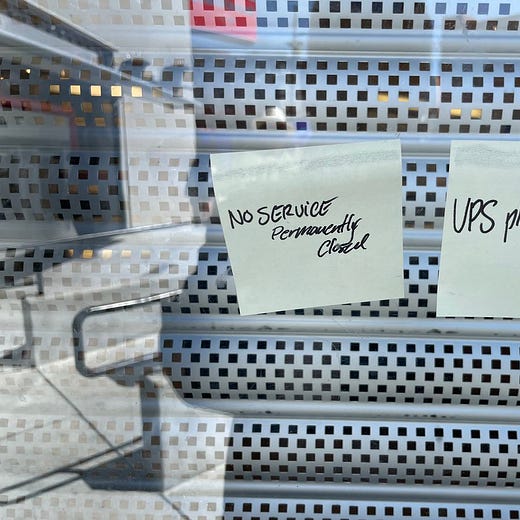 NO SERVICE
Permanently
Closed
UPS